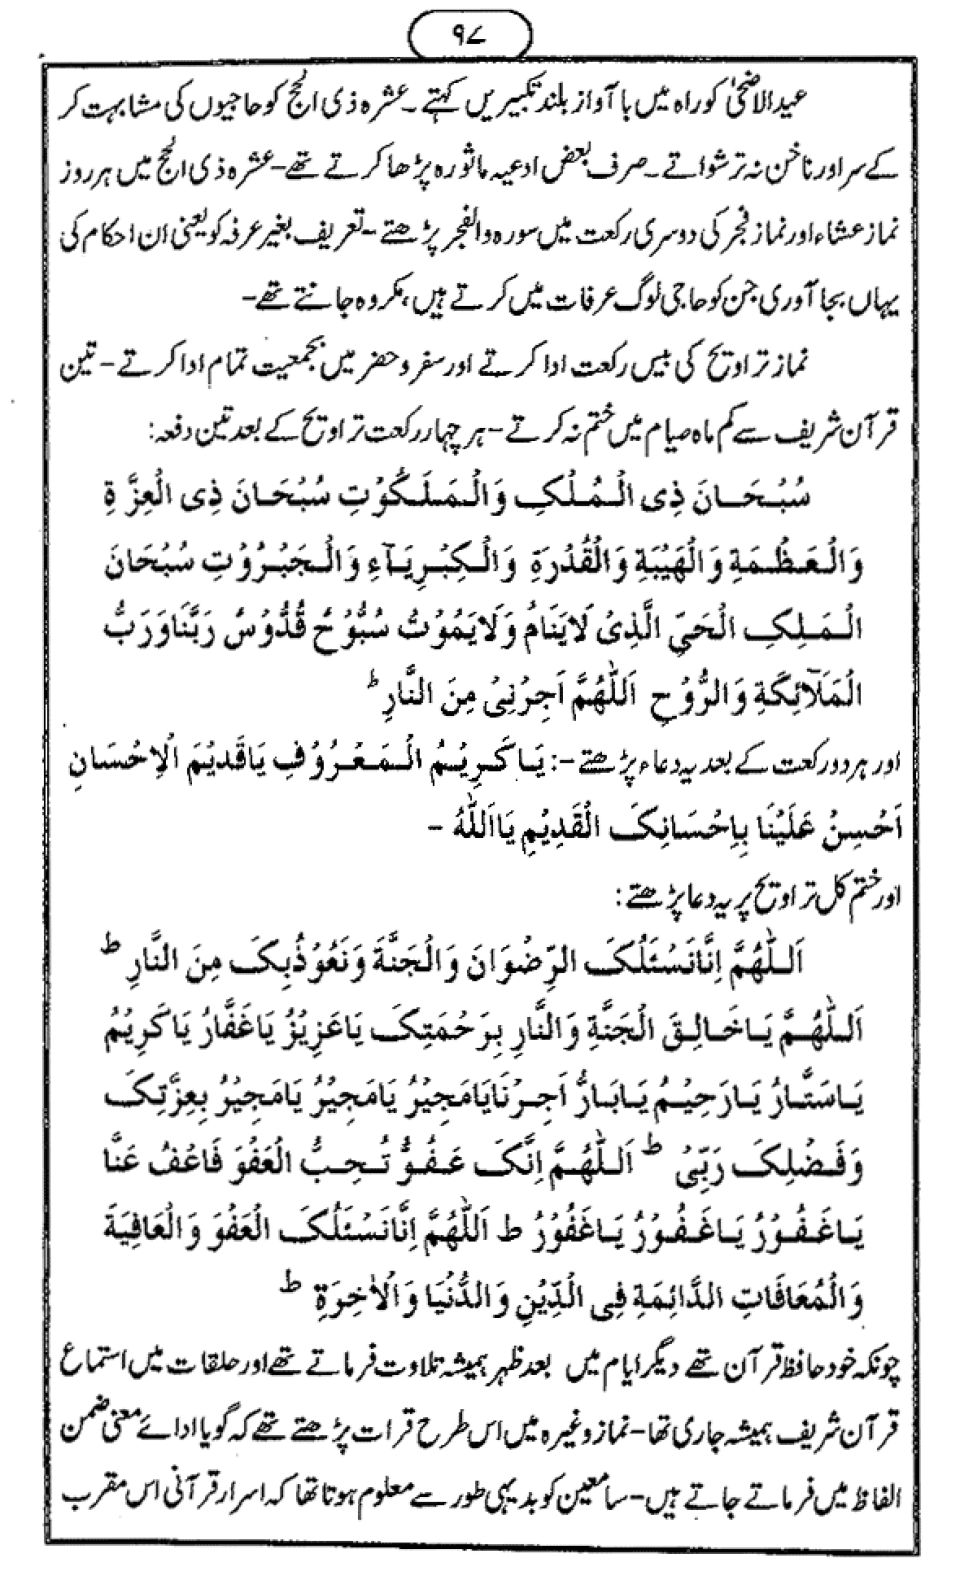 ۹۷
عیدالاضحیٰ کوراہ میں با آواز بلند تکبیریں کہتے۔ عشرہ ذی الحج کو حاجیوں کی مشابہت کر
کے سر اور ناخن نہ ترشواتے۔ صرف بعض ادعیہ ماثورہ پڑھا کرتے تھے- عشرہ ذی الحج میں ہر روز
نماز عشاء اور نماز فجر کی دوسری رکعت میں سورہ والفجر پڑھتے- تعریف بغیر عرفہ کو یعنی ان احکام کی
یہاں بجا آوری جن کو حاجی لوگ عرفات میں کرتے ہیں، مکروہ جانتے تھے-
نماز تراویح کی بیس رکعت ادا کرتے اور سفر و حضر میں بجمعیت تمام ادا کرتے- تین
قرآن شریف سے کم ماہ صیام میں ختم نہ کرتے- ہر چہار رکعت تراویح کے بعد تین دفعہ:
سُبْحَانَ ذِی الْمُلْکِ وَالْمَلَکُوْتِ سُبْحَانَ ذِی الْعِزَّةِ
وَالْعَظْمَةِ وَالْهَیْبَةِ وَالْقُدْرَةِ وَالْکِبْرِیَآءِ وَالْجَبْرُوْتِ سُبْحَانَ
الْمَلِکِ الْحَیِّ الَّذِیْ لَایَنَامُ وَلَایَمُوْتُ سُبُّوْحٌ قُدُّوْسٌ رَبَّنَا وَرَبُّ
الْمَلَآئِکَةِ وَالرُّوْحِ اَللّٰهُمَّ اَجِرْنِیْ مِنَ النَّارِ ؕ
اور ہر دو رکعت کے بعد یہ دعاء پڑھتے-: یَاکَرِیْمُ الْمَعْرُوْفِ یَاقَدِیْمَ الْاِحْسَانِ
اَحْسِنْ عَلَیْنَا بِاِحْسَانِکَ الْقَدِیْمِ یَااَللّٰهُ -
اور ختم کل تراویح پر یہ دعا پڑھتے:
اَللّٰهُمَّ اِنَّانَسْئَلُکَ الرِّضْوَانَ وَالْجَنَّةَ وَنَعُوْذُبِکَ مِنَ النَّارِ ؕ
اَللّٰهُمَّ یَاخَالِقَ الْجَنَّةِ وَالنَّارِ بِرَحْمَتِکَ یَاعَزِیْزُ یَاغَفَّارُ یَاکَرِیْمُ
یَاسَتَّارُ یَارَحِیْمُ یَابَارُّ اَجِرْنَایَامُجِیْرُ یَامُجِیْرُ یَامُجِیْرُ بِعِزَّتِکَ
وَفَضْلِکَ رَبِّیْ ؕ اَللّٰهُمَّ اِنَّکَ عَفُوٌّ تُحِبُّ الْعَفْوَ فَاعْفُ عَنَّا
یَاغَفُوْرُ یَاغَفُوْرُ یَاغَفُوْرُ ط اَللّٰهُمَّ اِنَّانَسْئَلُکَ الْعَفْوَ وَالْعَافِیَةَ
وَالْمُعَافَاتِ الدَّائِمَةِ فِی الدِّیْنِ وَالدُّنْیَا وَالْاٰخِرَةِ ؕ
چونکہ خود حافظ قرآن تھے دیگر ایام میں بعد ظہر ہمیشہ تلاوت فرماتے تھے اور حلقات میں استماع
قرآن شریف ہمیشہ جاری تھا- نماز وغیرہ میں اس طرح قرات پڑھتے تھے کہ گویا ادائے معنی ضمن
الفاظ میں فرماتے جاتے ہیں- سامعین کو بدیہی طور سے معلوم ہوتا تھا کہ اسرار قرآنی اس مقرب